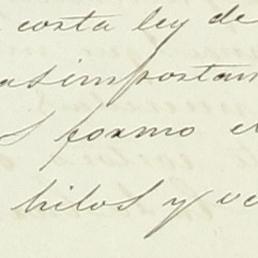 costa ley de
as importan
s formo e
hilos y ve